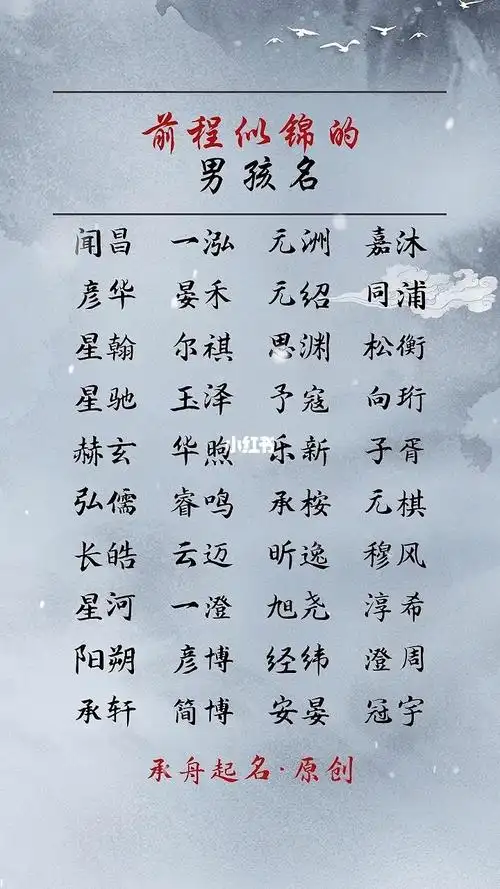 前程似锦的
男孩名
闻昌 一泓 元洲 嘉沐
彦华 晏禾 元绍 同浦
星翰 尔祺 思渊 松衡
星驰 玉泽 予寇 向珩
赫玄 华煦 乐新 子胥
小红书
弘儒 睿鸣 承桉 元棋
长皓 云迈 昕逸 穆风
星河 一澄 旭尧 淳希
阳朔 彦博 经纬 澄周
承轩 简博 安晏 冠宇
承舟起名·原创